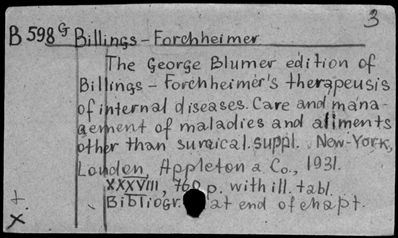 3
B 598 G Billings - Forchheimer
The George Blumer edition of
Billings - Forchheimer's therapeusis
of internal diseases. Care and mana-
gement of maladies and aliments
other than surgical. suppl. New-York,
London, Appleton a Co., 1931.
XXXVIII, 760 p. with ill. tabl.
Bibliogr. at end of chapt.
+
X